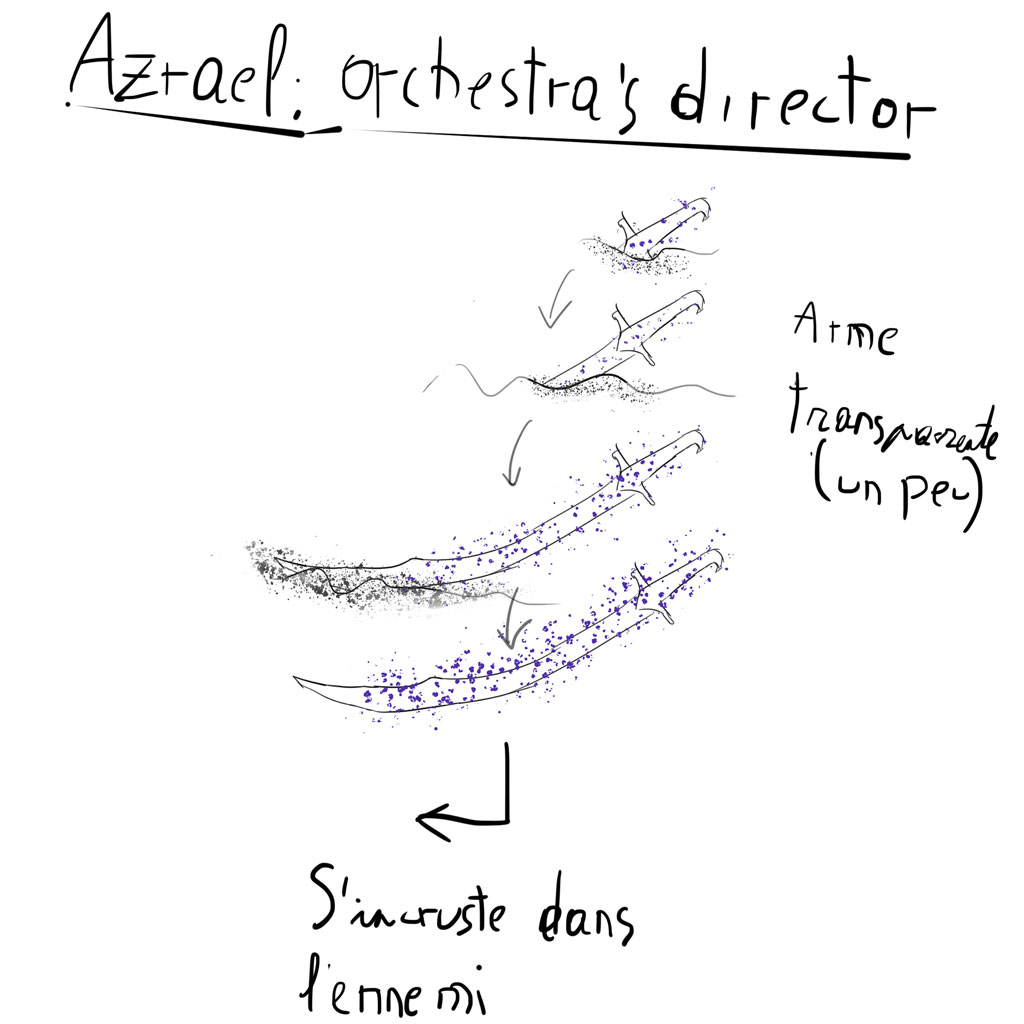 Azrael: orchestra's director
Arme
transparente
(un peu)
S'incruste dans
l'ennemi